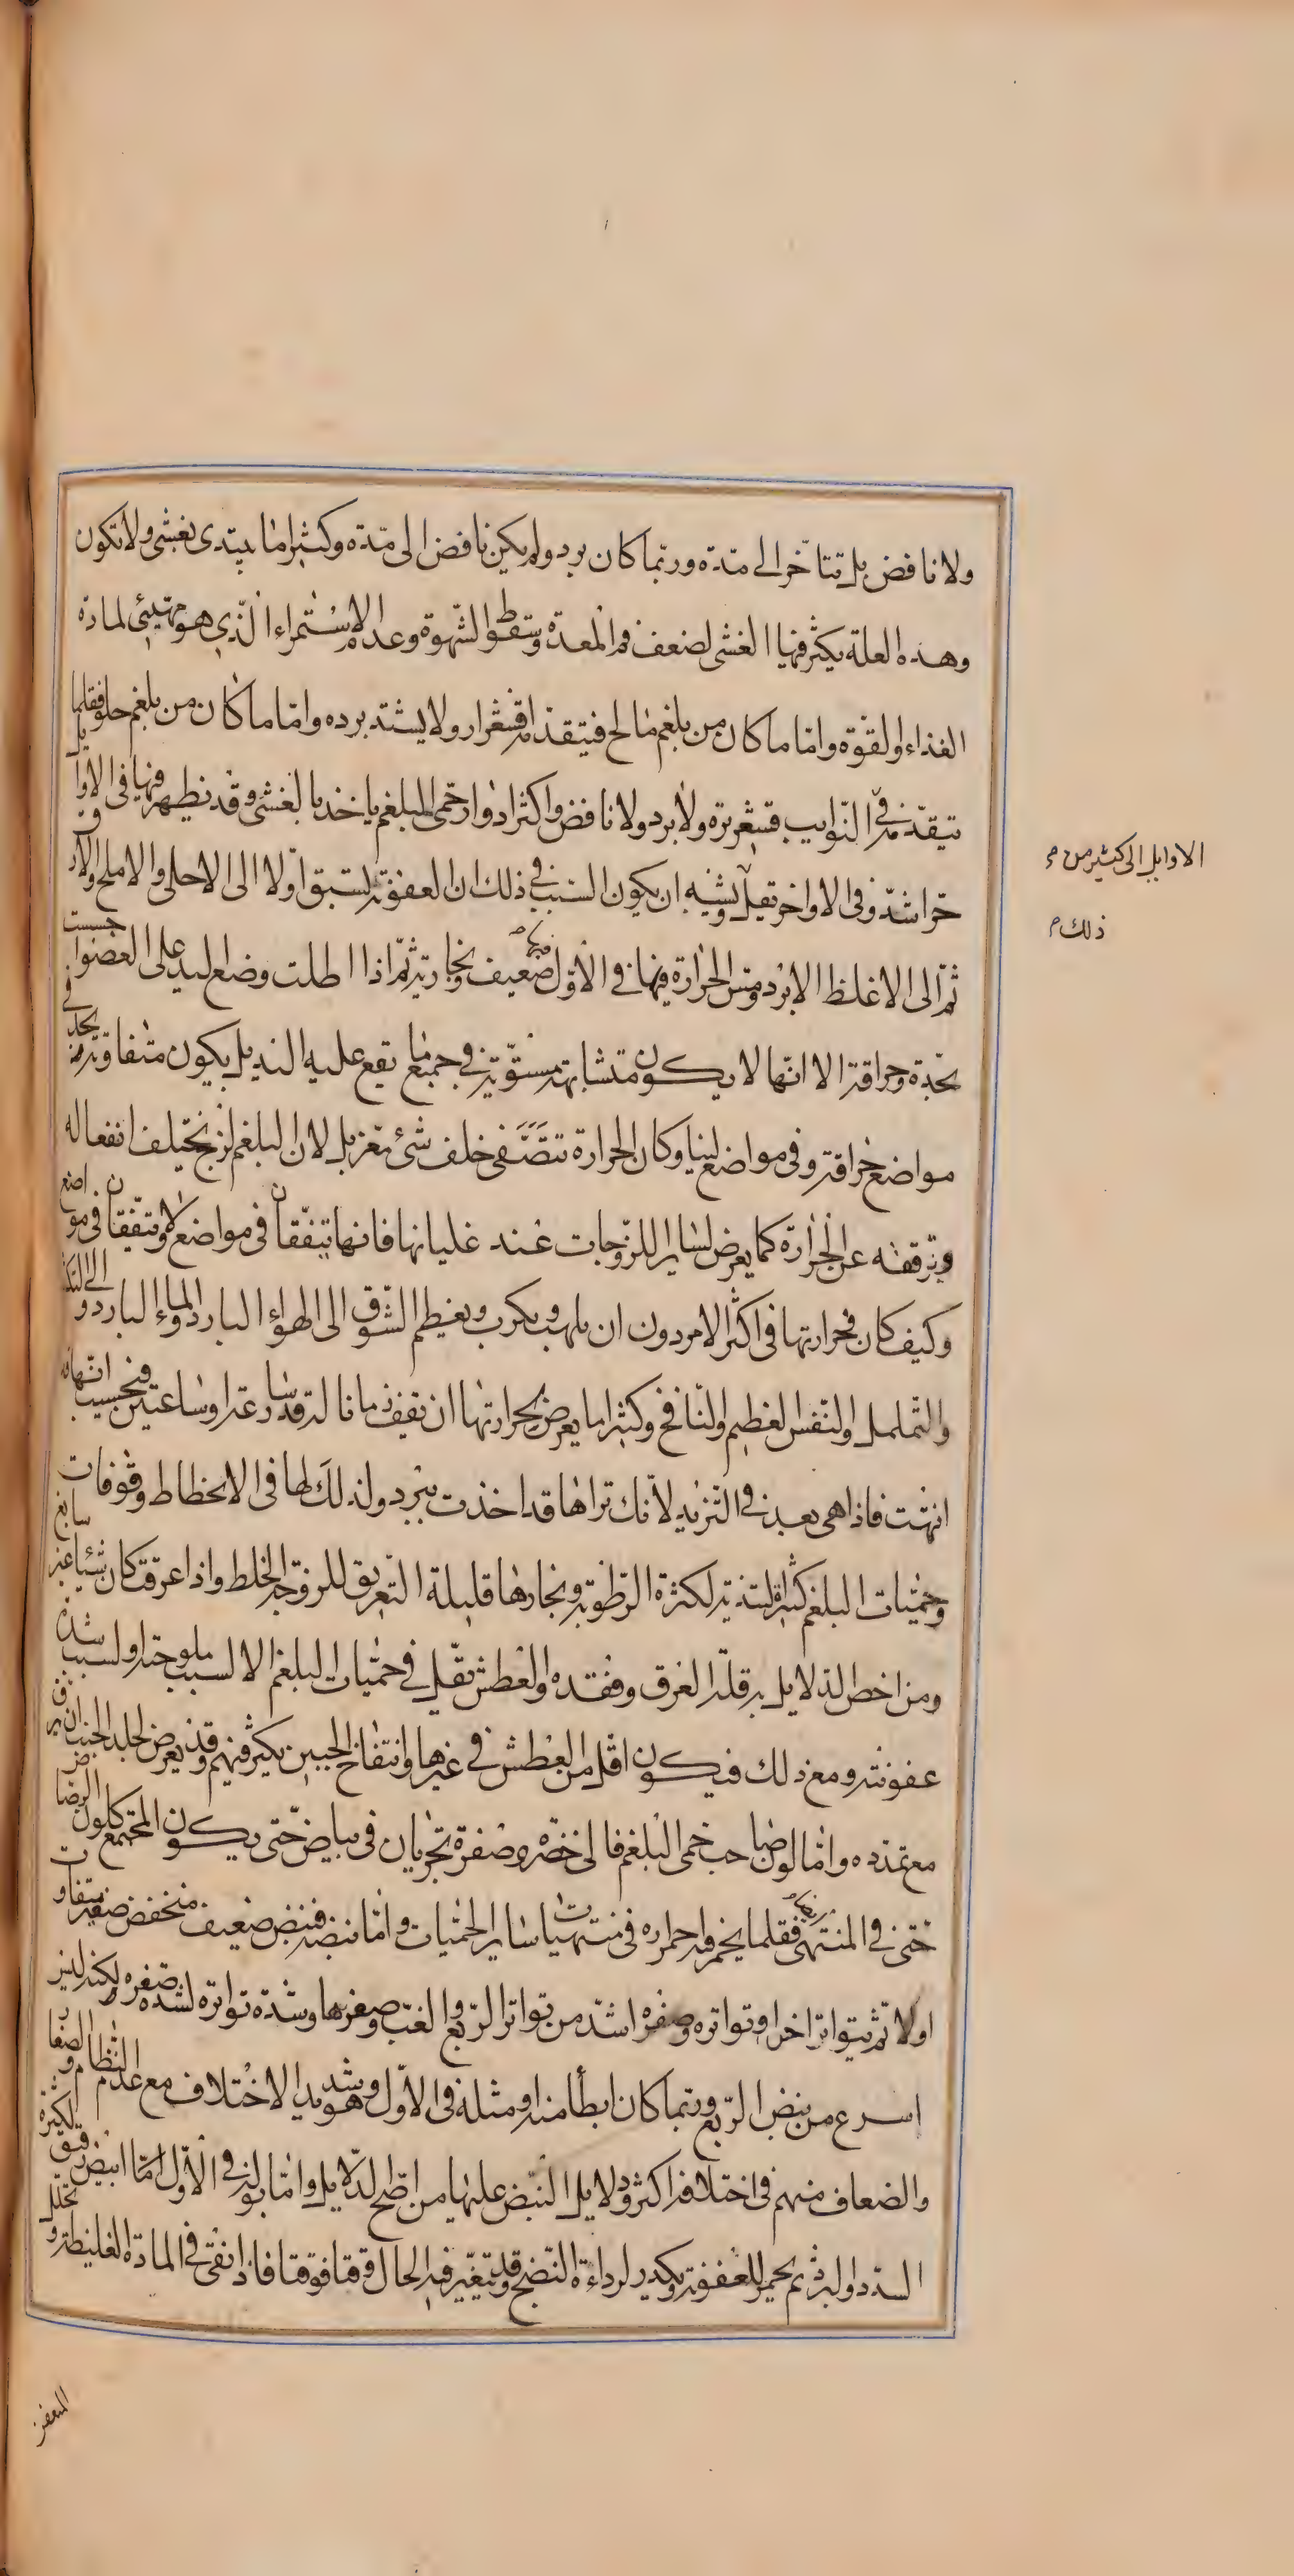 ولا نافض بل تتأخر الى مدة وربما كان برد ولم يكن نافض الى مدة وكثيرا ما يبتدى بغشى ولا تكون
وهذه العلة يكثر فيها الغشى لضعف فم المعدة وسقوط الشهوة وعدم الاستمراء الذى هو مهيئ لمادة
الغذاء والقوة واما ما كان من بلغم مالح فيتقدمه اقشعرار ولا يشتد برده واما ما كان من بلغم حلو فقلما
يتقدمه فى النوايب قشعريرة ولا برد ولا نافض واكثر ادوار حمى البلغم ياخذ بالغشى وقد يظهر فيها فى الاوايل
حر اشد وفى الاواخر تقبل ويشبه ان يكون السبب فى ذلك ان العفونة تسبق اولا الى الاحلى والاملح والارق
ثم الى الاغلظ الابرد ومس الحرارة فيها فى الاول ضعيف وبخارية ثم اذا اطلت وضع اليد على العضو احسست
بحدة وحراقة الا انها لا يكون متشابهة مستوية فى جميع ما يقع عليه اليد بل يكون متفاوتة تجد فى
مواضع حراقة وفى مواضع لينا وكان الحرارة تتصفى خلف شئ متغربل لان البلغم لزج يختلف انفعاله
وترققه عن الحرارة كما يعرض لساير اللزوجات عند غليانها فانها تتفقأن فى مواضع ولا يتفقأن فى مواضع
وكيف كان فحرارتها فى اكثر الامر دون ان يلهب ويكرب ويعظم الشوق الى الهواء البارد والماء البارد والى التكشف
والتململ والنفس العظيم والنافخ وكثيرا ما يعرض لحرارتها ان تقف زمانا له قدر ساعة او ساعتين فتحسب انها قد
انتهت فاذا هى بعد فى التزيد لانك تراها قد اخذت تبرد ولذلك لها فى الانحطاط وقوفات
وحميات البلغم كثيرة التندية لكثرة الرطوبة وبخارها قليلة التعريق للزوجة الخلط واذا عرقت كان شيئا غير سابغ
ومن اخص الدلايل به قلة العرق وفقده والعطش تقل فى حميات البلغم الا لسبب ملوحته او لسبب شدة
عفونته ومع ذلك فيكون اقل من العطش فى غيرها وانتفاخ الجبين يكثر فيهم وقد يعرض لجلد الجنب ان يرق
مع تمدده واما لون صاحب حمى البلغم فالى خضرة وصفرة تجريان فى بياض حتى يكون المجتمع كلون الرصاص
حتى فى المنتهى فقلما يحمر فيه احمراره فى منتهيات ساير الحميات واما نبضه فنبض ضعيف منخفض صغير متفاوت
اولا ثم يتواتر اخرا وتواتره وصغره اشد من تواتر الربع والغب وصغرهما وشدة تواتره لشدة صغره ولكنه ليس
اسرع من نبض الربع وربما كان ابطأ منه او مثله فى الاول وهو شديد الاختلاف مع عدم النظام والصغار
والضعاف منهم فى اختلافه اكثر ودلايل النبض عليها من اصح الدلايل واما بوله فى الاول اما ابيض رقيق لكثرة
السدد والبرد ثم يحمر للعفونة ويكدر لرداءة النضج وقد يتغير فيه الحال وقتا فوقتا فاذا بقى فى المادة الغليظة وتحلل
المتعفن
الاوايل الى كثير من
ذلك